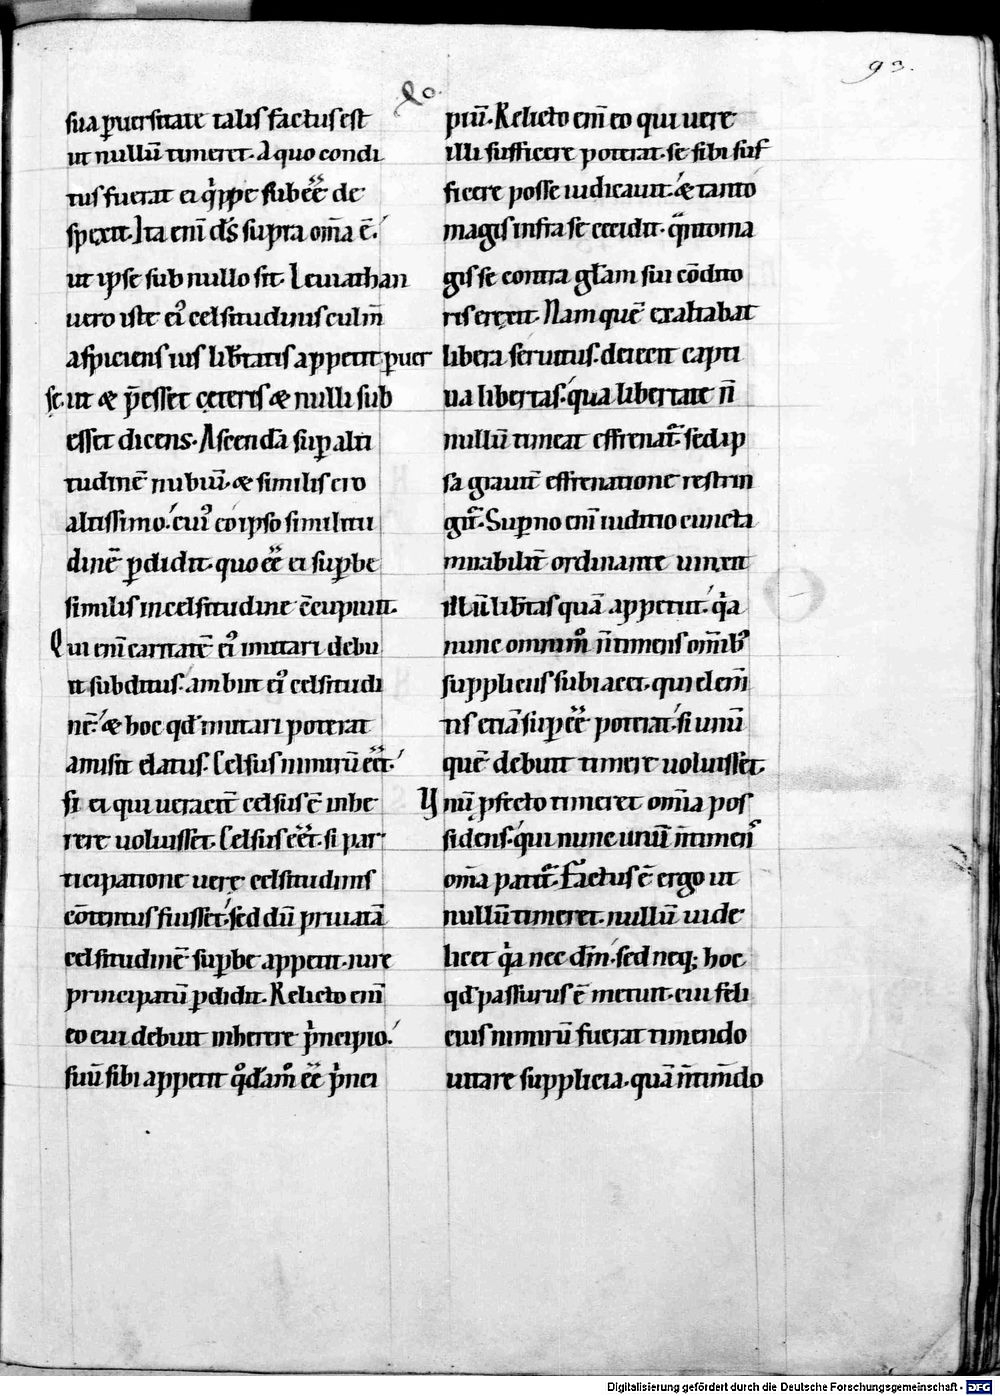 93.
sua puersitate talis factus est
ut nullū timeret. A quo condi
tus fuerat ei q̇ppe subēē de
spexit. Ita eni d̄s supra om̄a ē.
ut ipse sub nullo sit. Leuiathan
uero iste ei᾽ celsitudinis culm̄
aspiciens ius lib̄tatis appetiit puer
sę. ut & p̄esset cęteris & nulli sub
esset dicens. Ascendā sup alti
tudinē nubiū. & similis ero
altissimo. cui᾽ eo ipso similitu
dinē pdidit. quo ēē ei supbe
similis in celsitudine ē cupiuit.
Qui eni caritatē ei᾽ imitari debu
it subditus. ambiit ei᾽ celsitudi
nē. & hoc qd̄ imitari poterat
amisit elatus. Celsus nimirū ēēt.
si ei qui ueracit̄ celsus ē inhe
rere uoluisset. Celsus ēēt. si par
ticipatione uerę celsitudinis
cōtentus fuisset. sed dū priuatā
celsitudinē supbe appetit. iure
principatū pdidit. Relicto eni
eo cui debuit inherere p̍ncipio.
suū sibi appetit q̊dam̊ ēē p̍nci
piū. Relicto eni eo qui uere
illi sufficere poterat. se sibi suf
ficere posse iudicauit. & tanto
magis infra se cecidit. q̄nto ma
gis se contra gl̄am sui cōdito
ris erexit. Nam quē exaltabat
libera seruitus. deiecit capti
ua libertas. qua libertate n̄
nullū timeat effrenat᾽. sed ip
sa grauit̄ effrenatione restrin
git᾽. Supno eni iuditio cuncta
mirabilit̄ ordinante uinxit
illū lib̄tas quā appetiit. q̍a
nunc omnim̊ n̄ timens om̄ib᾽
suppliciis subiacet. qui elem̄
tis etiā sup ēē poterat. si unū
quē debuit timere uoluisset.
Unū pfecto timeret om̄ia pos
sidens. qui nunc unū n̄ timens
om̄a patit᾽. Factus ē ergo ut
nullū timeret. nullū uide
licet q̍a nec dm̄. sed neq; hoc
qd̄ passurus ē metuit. cui feli
cius nimirū fuerat timendo
uitare supplicia. quā n̄ timdo
Digitalisierung gefördert durch die Deutsche Forschungsgemeinschaft - DFG